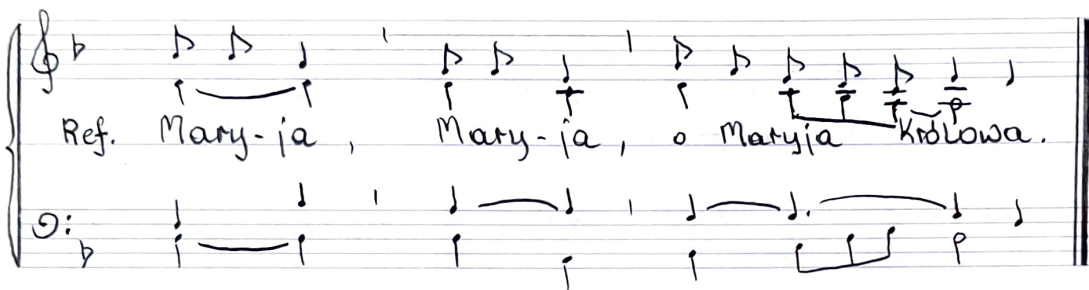 Ref. Mary-ja, Mary-ja, o Maryja Królowa.